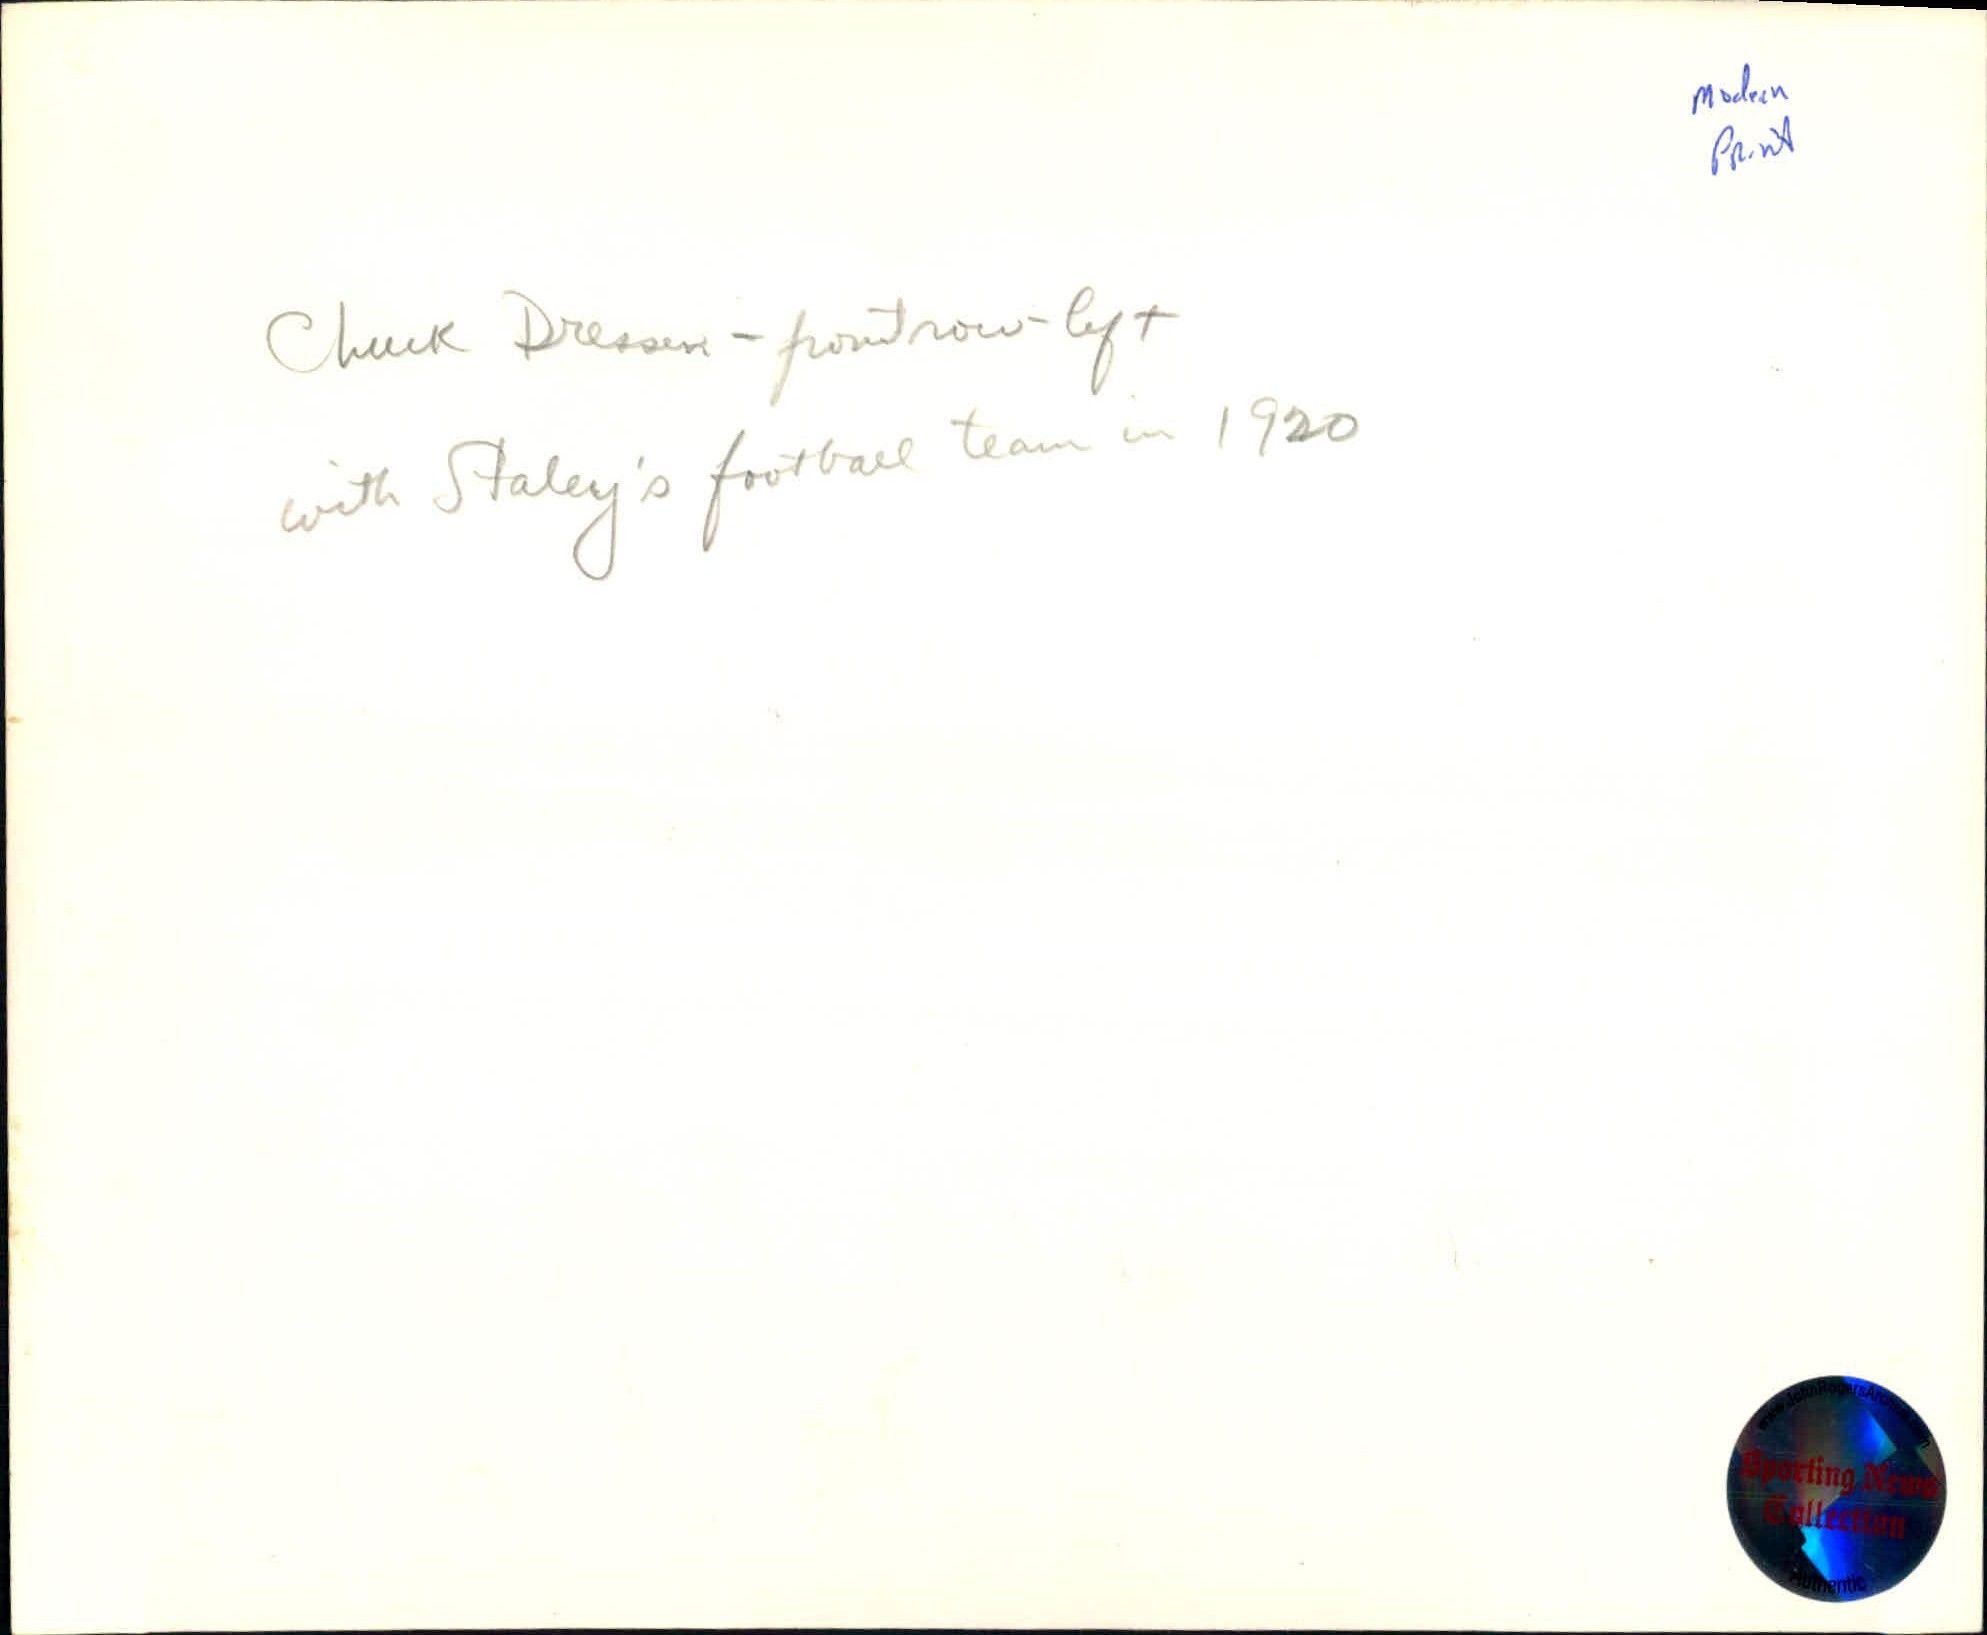 Modern
Print
Chuck Dressen - front row - left
with Staley's football team in 1920
www.JohnRogersArchive.com
Sporting News
Collection
Authentic